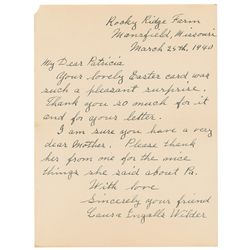 Rocky Ridge Farm
Mansfield, Missouri
March 25th, 1940
My Dear Patricia
Your lovely Easter card was
such a pleasant surprise.
Thank you so much for it
and for your letter.
I am sure you have a very
dear Mother. Please thank
her from one for the nice
things she said about Pa.
With love
Sincerely your friend
Laura Ingalls Wilder